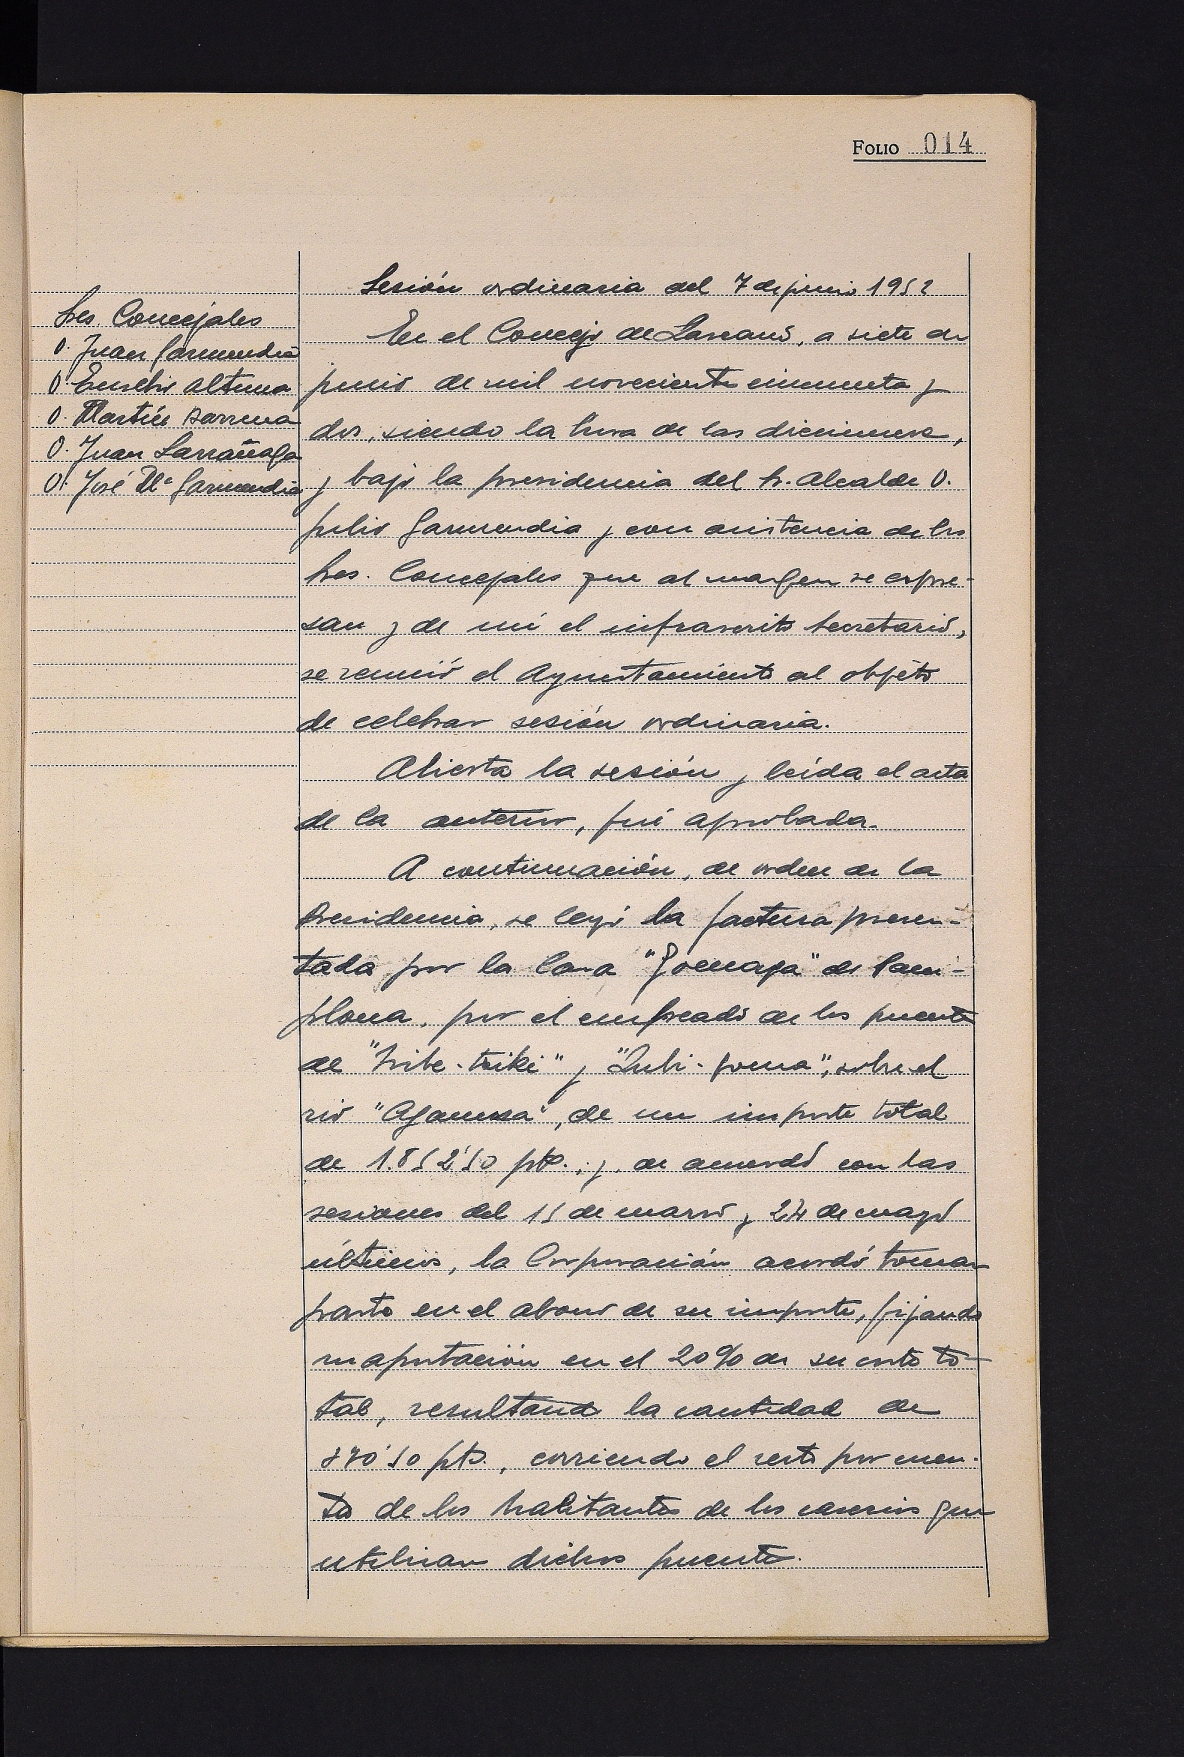 FOLIO 014
Sesión ordinaria del 7 de junio 1952
Sres Concejales
D. Juan Garmendia
D. Eusebio Altuna
D. Martín Barrena
D. Juan Larrañaga
D. José Mª Garmendia
En el Concejo de Lazcano, a siete de
junio de mil novecientos cincuenta y
dos, siendo la hora de las diecinueve,
y bajo la presidencia del Sr. Alcalde D.
Julio Garmendia y con asistencia de los
Sres. Concejales que al margen se expre-
san y de mí el infrascrito Secretario,
se reunió el Ayuntamiento al objeto
de celebrar sesión ordinaria.
Abierta la sesión y leída el acta
de la anterior, fué aprobada.
A continuación, de orden de la
Presidencia, se leyó la factura presen-
tada por la Casa de Pam-
plona, por el empleado de los puentes
de y "Zubi-gorria", sobre el
río "Agaunza", de un importe total
de 1.852'50 pts., y de acuerdo con las
sesiones del 15 de marzo y 24 de mayo
últimos, la Corporación acordó tomar
parte en el abono de su importe, fijando
su aportación en el 20% de su costo to-
tal, resultando la cantidad de
370'50 pts., corriendo el resto por cuen-
ta de los habitantes de los caseríos que
utilizan dichos puentes.